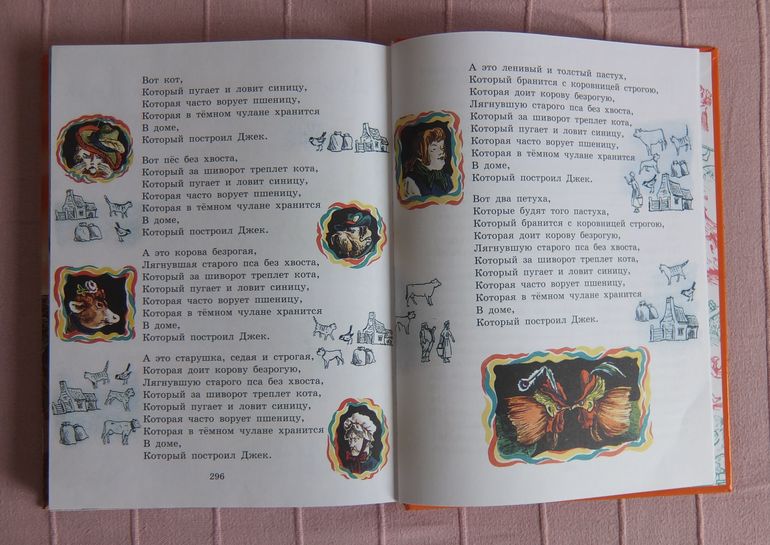 Вот кот,
Который пугает и ловит синицу,
Которая часто ворует пшеницу,
Которая в тёмном чулане хранится
В доме,
Который построил Джек.
Вот пёс без хвоста,
Который за шиворот треплет кота,
Который пугает и ловит синицу,
Которая часто ворует пшеницу,
Которая в тёмном чулане хранится
В доме,
Который построил Джек.
А это корова безрогая,
Лягнувшая старого пса без хвоста,
Который за шиворот треплет кота,
Который пугает и ловит синицу,
Которая часто ворует пшеницу,
Которая в тёмном чулане хранится
В доме,
Который построил Джек.
А это старушка, седая и строгая,
Которая доит корову безрогую,
Лягнувшую старого пса без хвоста,
Который за шиворот треплет кота,
Который пугает и ловит синицу,
Которая часто ворует пшеницу,
Которая в тёмном чулане хранится
В доме,
Который построил Джек.
296
А это ленивый и толстый пастух,
Который бранится с коровницей строгою,
Которая доит корову безрогую,
Лягнувшую старого пса без хвоста,
Который за шиворот треплет кота,
Который пугает и ловит синицу,
Которая часто ворует пшеницу,
Которая в тёмном чулане хранится
В доме,
Который построил Джек.
Вот два петуха,
Которые будят того пастуха,
Который бранится с коровницей строгою,
Которая доит корову безрогую,
Лягнувшую старого пса без хвоста,
Который за шиворот треплет кота,
Который пугает и ловит синицу,
Которая часто ворует пшеницу,
Которая в тёмном чулане хранится
В доме,
Который построил Джек.